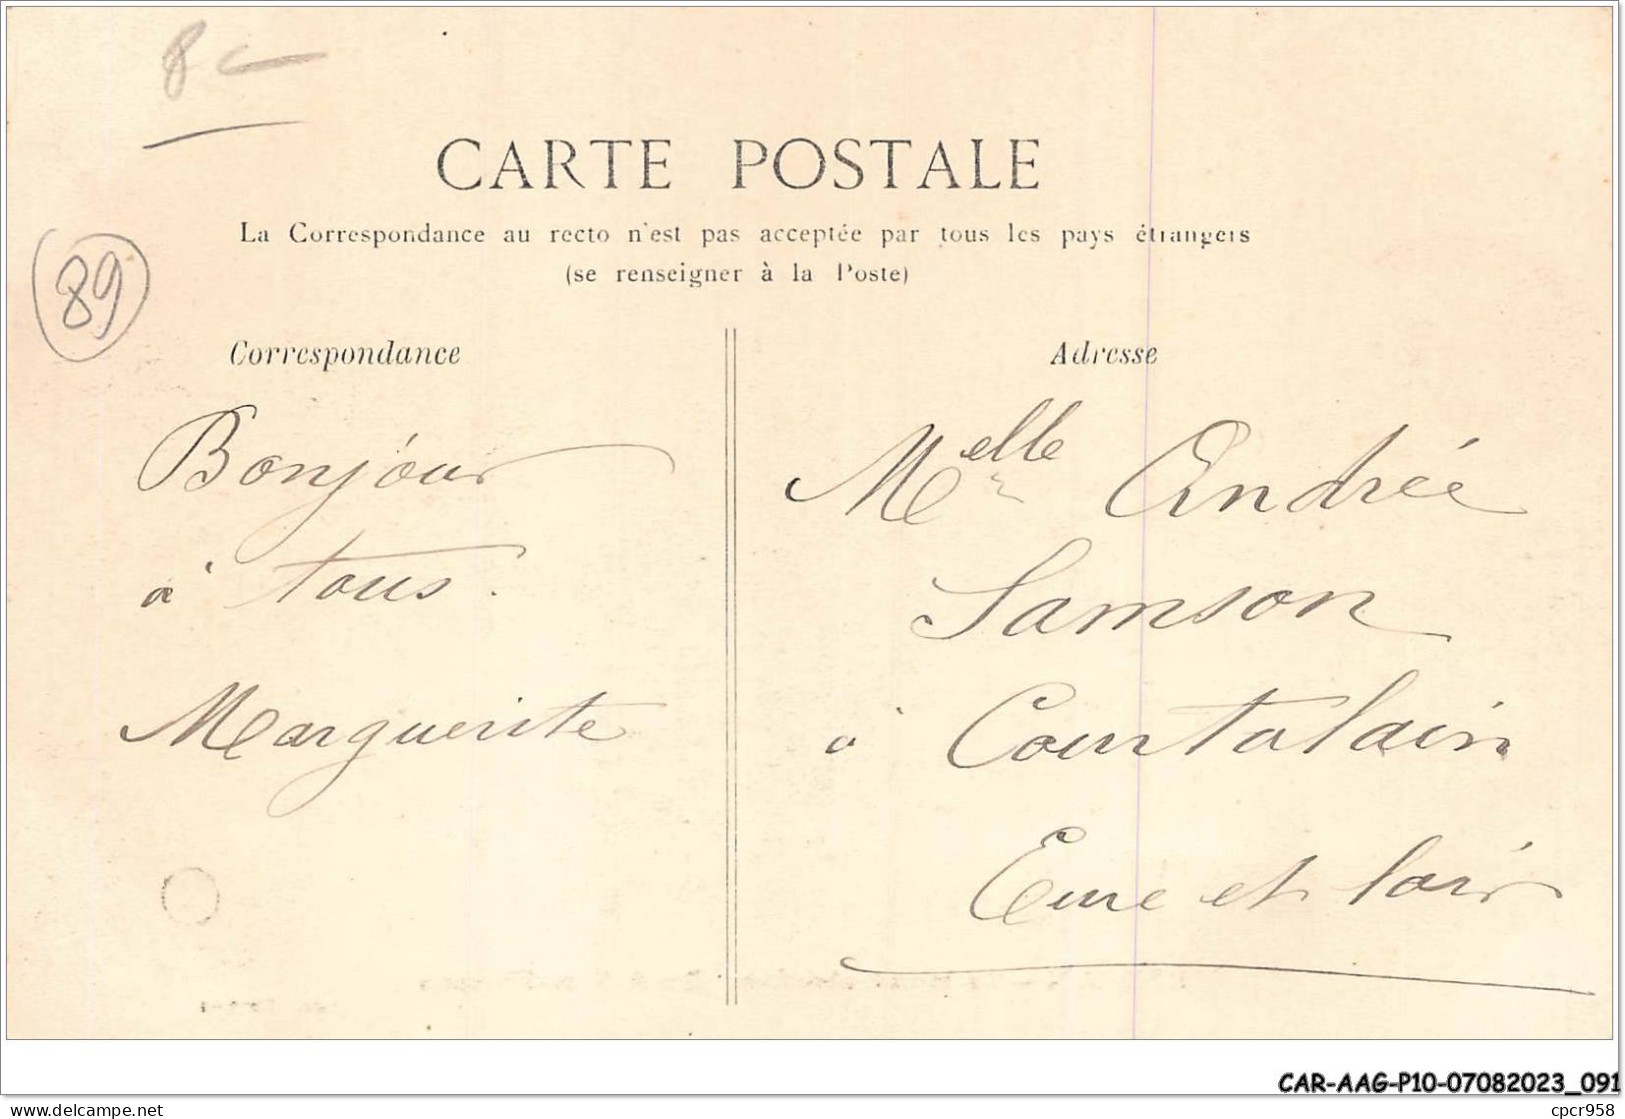 8c
CARTE POSTALE
La Correspondance au recto n'est pas acceptée par tous les pays étrangers
(se renseigner à la Poste)
89
Correspondance
Bonjour
à tous.
Marguerite
Adresse
Melle Andrée
Samson
à Courtalain
Eure et loir
CAR-AAG-P10-07082023_091
delcampe.net
cpcr958